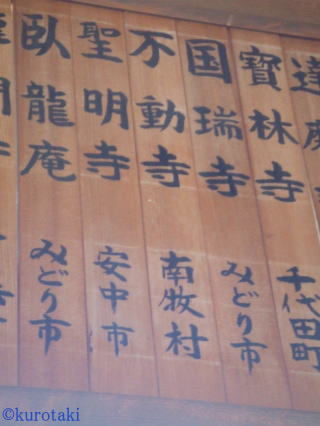 達磨寺
寶林寺 千代田町
国瑞寺 みどり市
不動寺 南牧村
聖明寺 安中市
臥龍庵 みどり市
©kurotaki